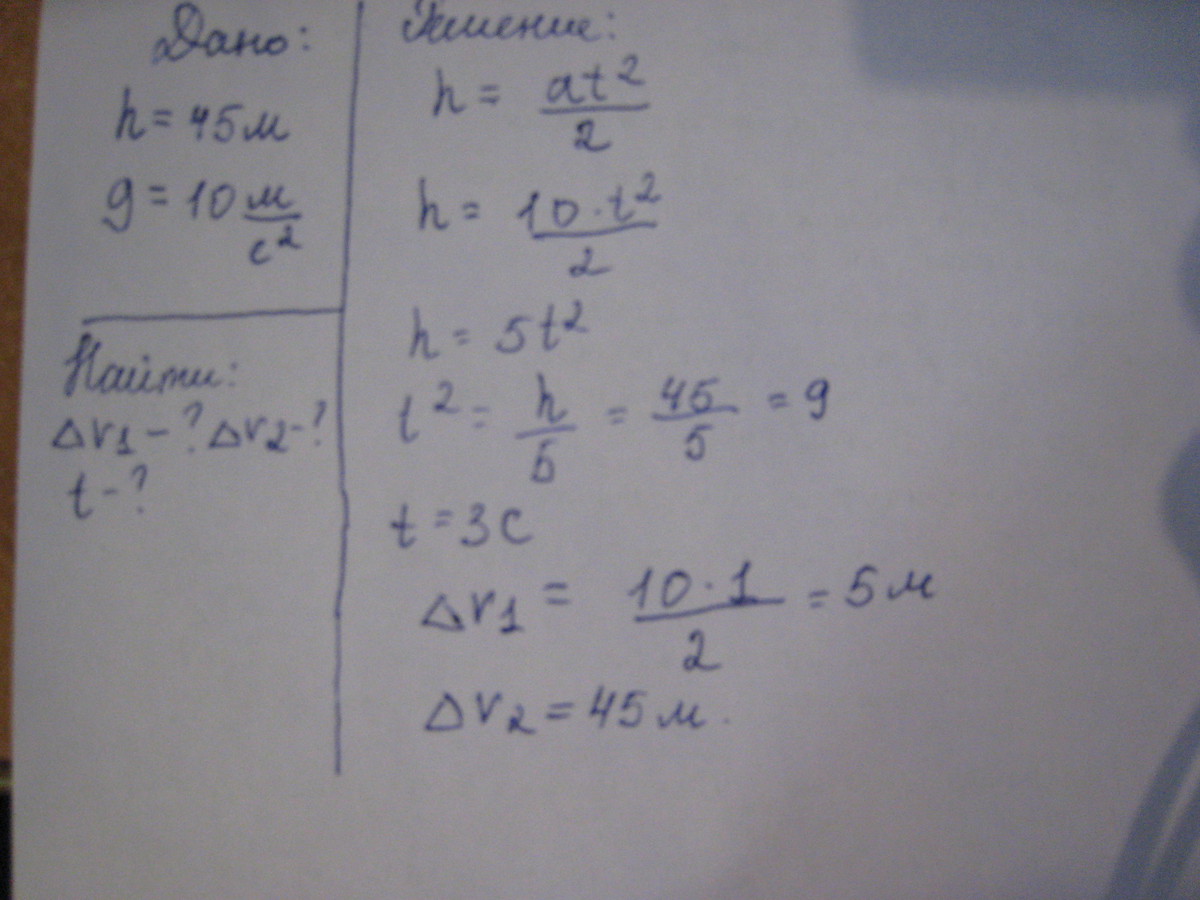 Дано:
h = 45м
g = 10 м/с²
Найти:
Δr1 - ? Δr2 - ?
t - ?
Решение:
h = at²/2
h = 10·t²/2
h = 5t²
t² = h/5 = 45/5 = 9
t = 3с
Δr1 = 10·1/2 = 5м
Δr2 = 45м.